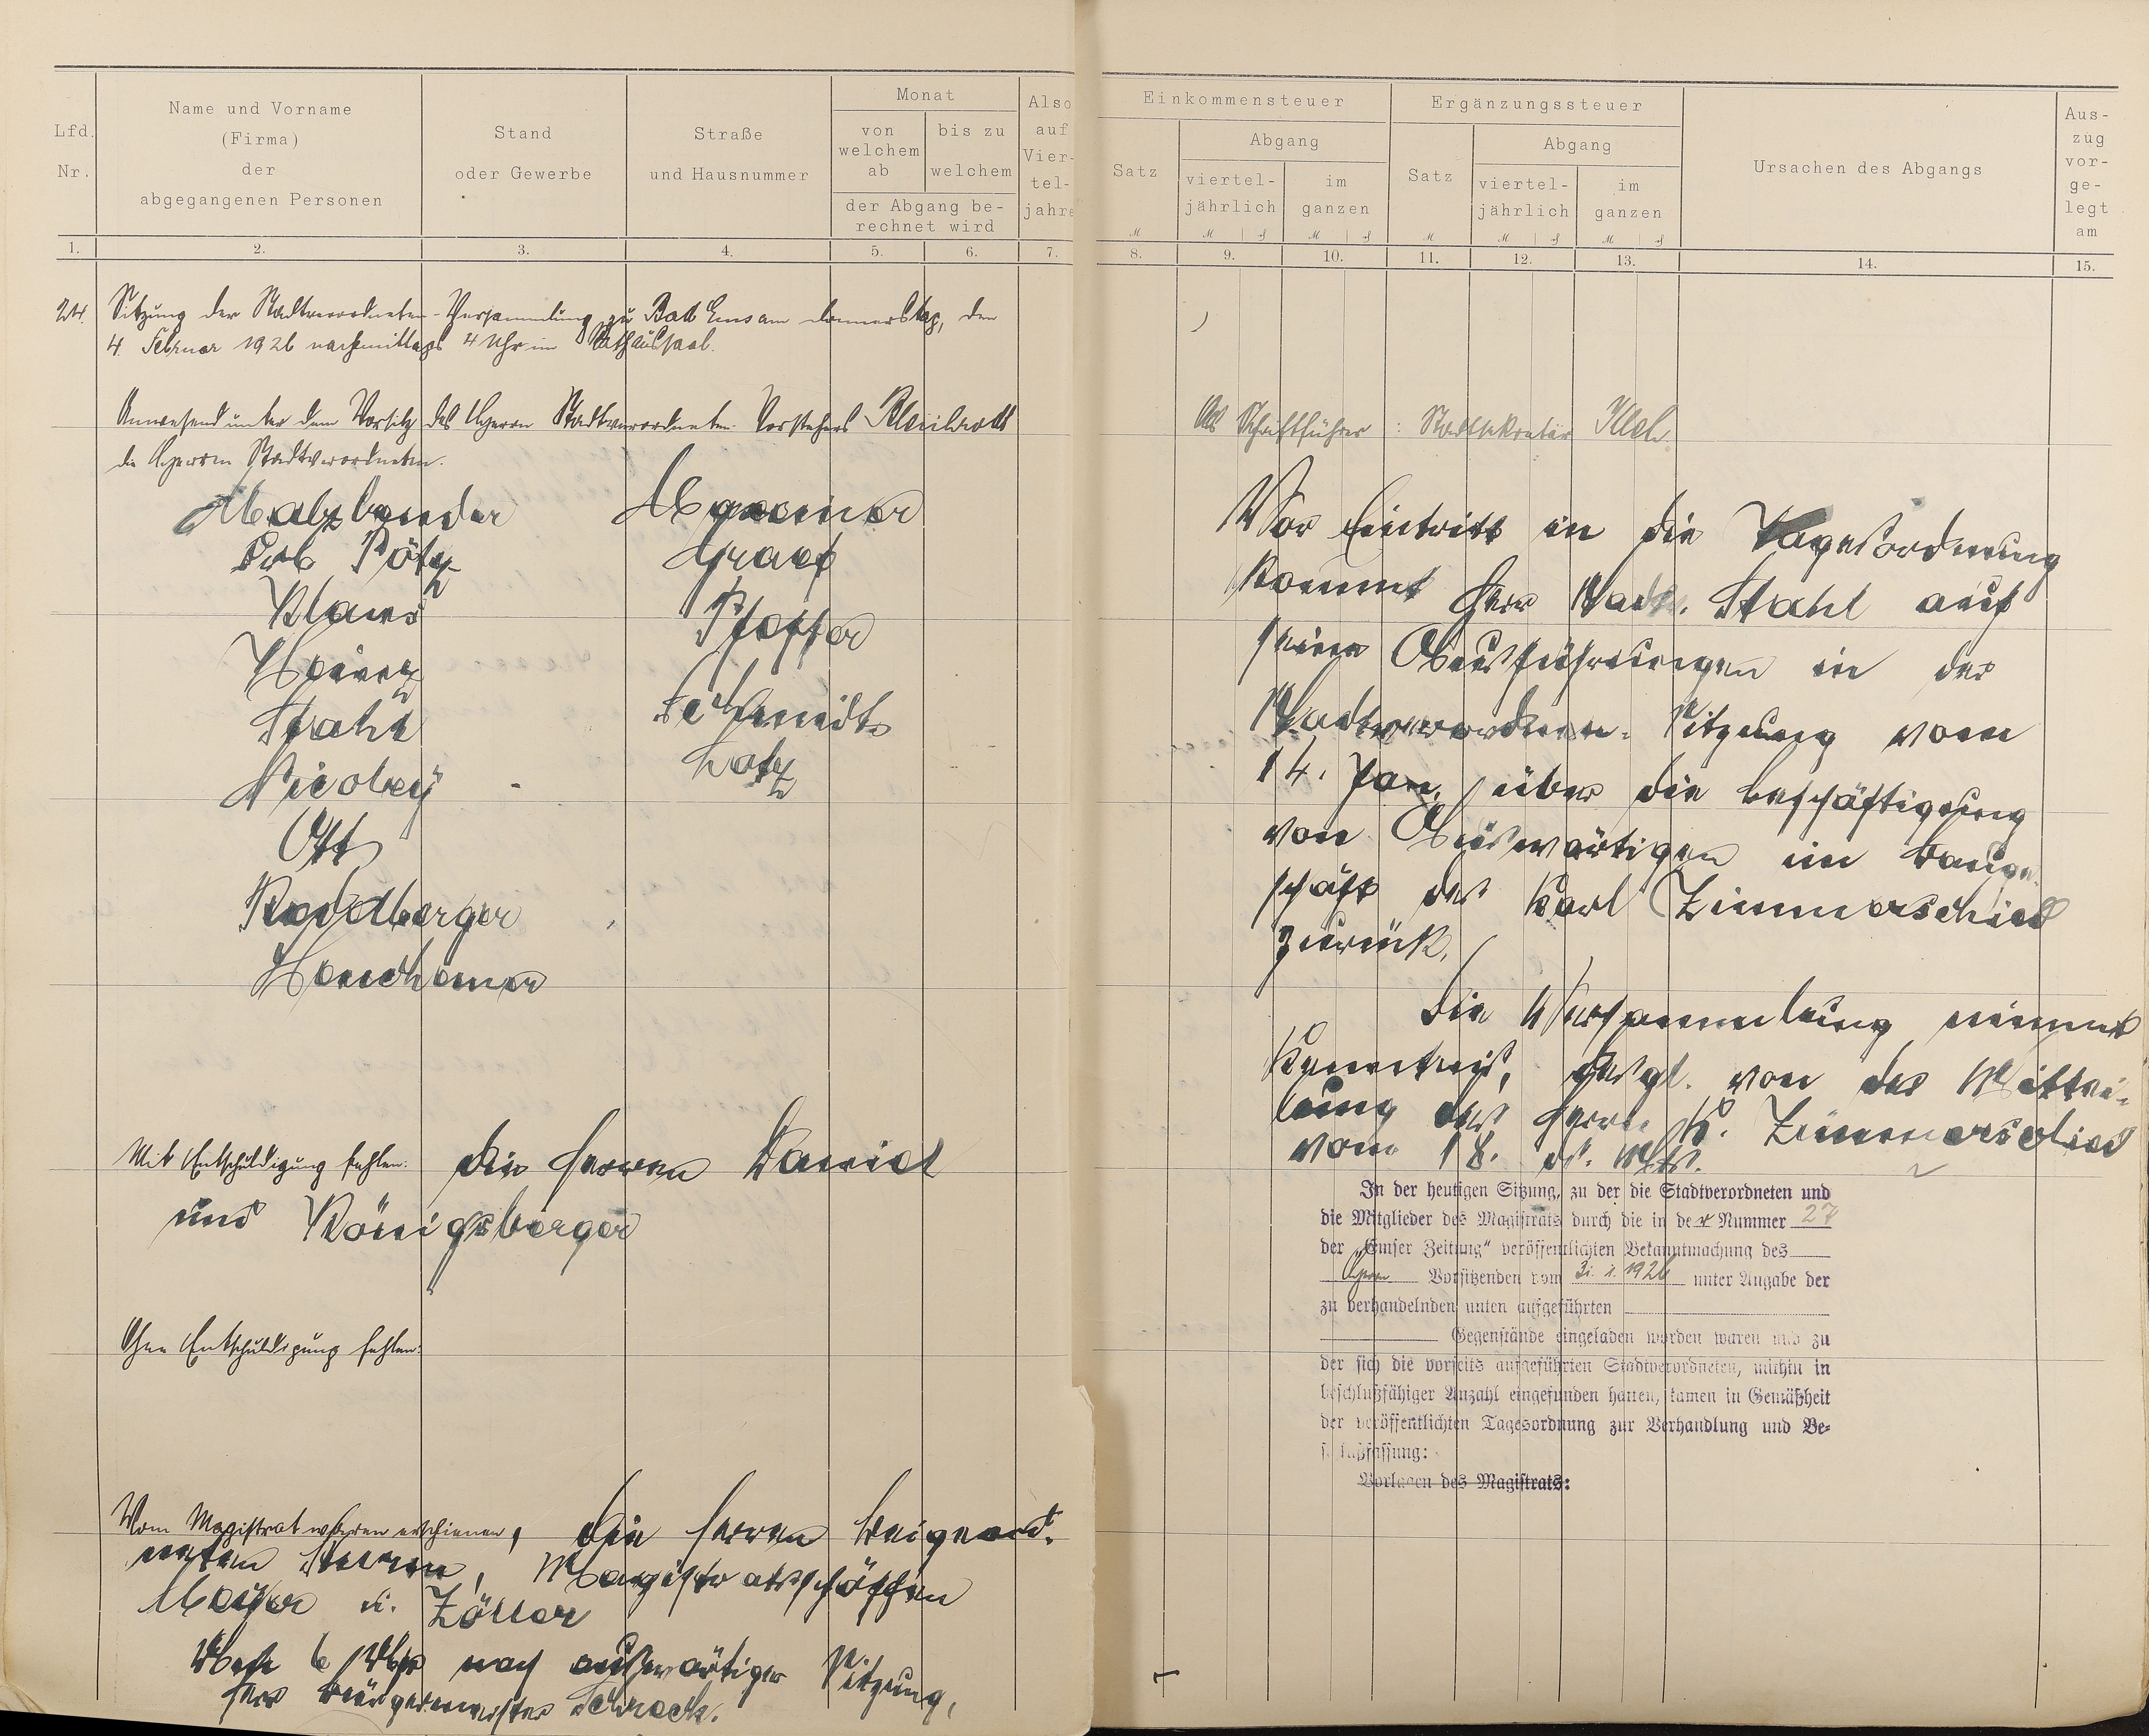 Lfd. Nr.
Name und Vorname
(Firma)
der
abgegangenen Personen
Stand
oder Gewerbe
Straße
und Hausnummer
Monat
von welchem ab
bis zu welchem
der Abgang be-
rechnet wird
Also auf Vier-tel-jahre
1. 2. 3. 4. 5. 6. 7.
24. Sitzung der Stadtverordneten-Versammlung zu Bad Ems am Donnerstag, den
4. Februar 1926 nachmittags 4 Uhr im Rathaussaal.
Anwesend unter dem Vorsitz des Herrn Stadtverordneten-Vorstehers
die Herren Stadtverordneten.
Malzbender
Pötz
Klaus
Heinz
Stahl
Nicolay
Ott
Graef
Pfeffer
Schmidt
Lotz
Mit Entschuldigung fehlen: die Herren
und Königsberger
Ohne Entschuldigung fehlen:
Vom Magistrat waren erschienen, die Herren Beigeord-
neten Magistratsschöffen
Mayer u. Zöller
6 Uhr nach auswärtiger Sitzung,
Herr Bürgermeister Schreck.
Einkommensteuer
Satz
Abgang
viertel-jährlich
im ganzen
Ergänzungssteuer
Satz
Abgang
viertel-jährlich
im ganzen
Ursachen des Abgangs
Aus-zug vor-ge-legt am
8. 9. 10. 11. 12. 13. 14. 15.
Als Schriftführer: Stadtsekretär
Vor Eintritt in die Tagesordnung
kommt Herr Stadtv. Stahl auf
seine Ausführungen in der
Stadtverordneten-Sitzung vom
14. Jan. über die Beschäftigung
von Auswärtigen im Bauge-
schäft des Karl Zimmerschied
zurück.
Die Versammlung nimmt
Kenntnis, desgl. von der Mittei-
lung des Herrn K. Zimmerschied
vom 18. ds. Mts.
In der heutigen Sitzung, zu der die Stadtverordneten und
die Mitglieder des Magistrats durch die in der Nummer 27
der „Emser Zeitung" veröffentlichten Bekanntmachung des
Herrn Vorsitzenden vom 31. 1. 1926 unter Angabe der
zu verhandelnden unten aufgeführten
Gegenstände eingeladen worden waren und zu
der sich die vorseits aufgeführten Stadtverordneten, mithin in
beschlußfähiger Anzahl eingefunden hatten, kamen in Gemäßheit
der veröffentlichten Tagesordnung zur Verhandlung und Be-
schlußfassung:
Vorlagen des Magistrats: